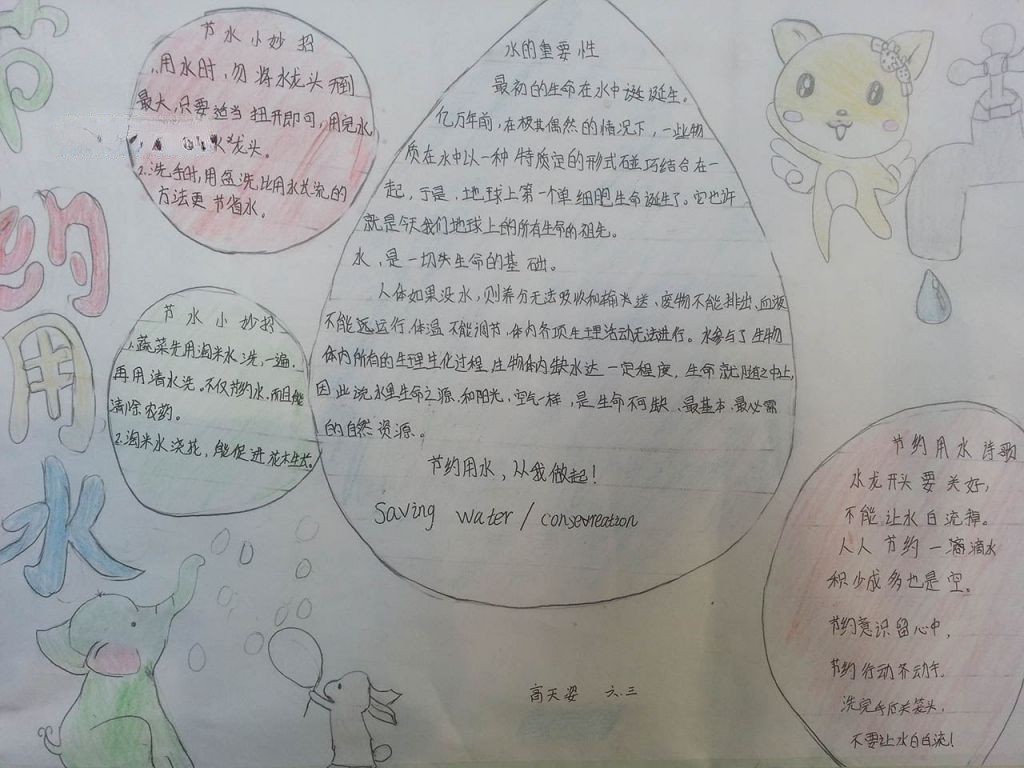 节约用水
节水小妙招
1.用水时，勿将水龙头开到
最大，只要适当扭开即可，用完水，
龙头。
2.洗手时，用盆洗比用水长流的
方法更节省水。
节水小妙招
1.蔬菜先用淘米水洗，一遍，
再用清水洗。不仅节约水，而且能
清除农药。
2.淘米水浇花，能促进花木生长。
水的重要性
最初的生命在水中诞诞生。
亿万年前，在极其偶然的情况下，一些物
质在水中以一种特质定的形式碰巧结合在一
起，于是，地球上第一个单细胞生命诞生了。它也许
就是今天我们地球上的所有生命的祖先。
水，是一切失生命的基础。
人体如果没水，则养分无法吸收和输送，废物不能排出，血液
不能运行，体温不能调节，体内各项生理活动无法进行。水参与了生物
体内所有的生理生化过程，生物体内缺水达一定程度，生命就随之中止，
因此说水是生命之源，和阳光，空气一样，是生命不可缺、最基本、最必需
的自然资源。
节约用水，从我做起！
Saving water / consevreation
节约用水诗歌
水龙开头要关好，
不能让水白流掉。
人人节约一滴滴水
积少成多也是空。
节约意识留心中，
节约行动齐动手.
洗完手后关笼头，
不要让水白白流！
高天姿 六.三